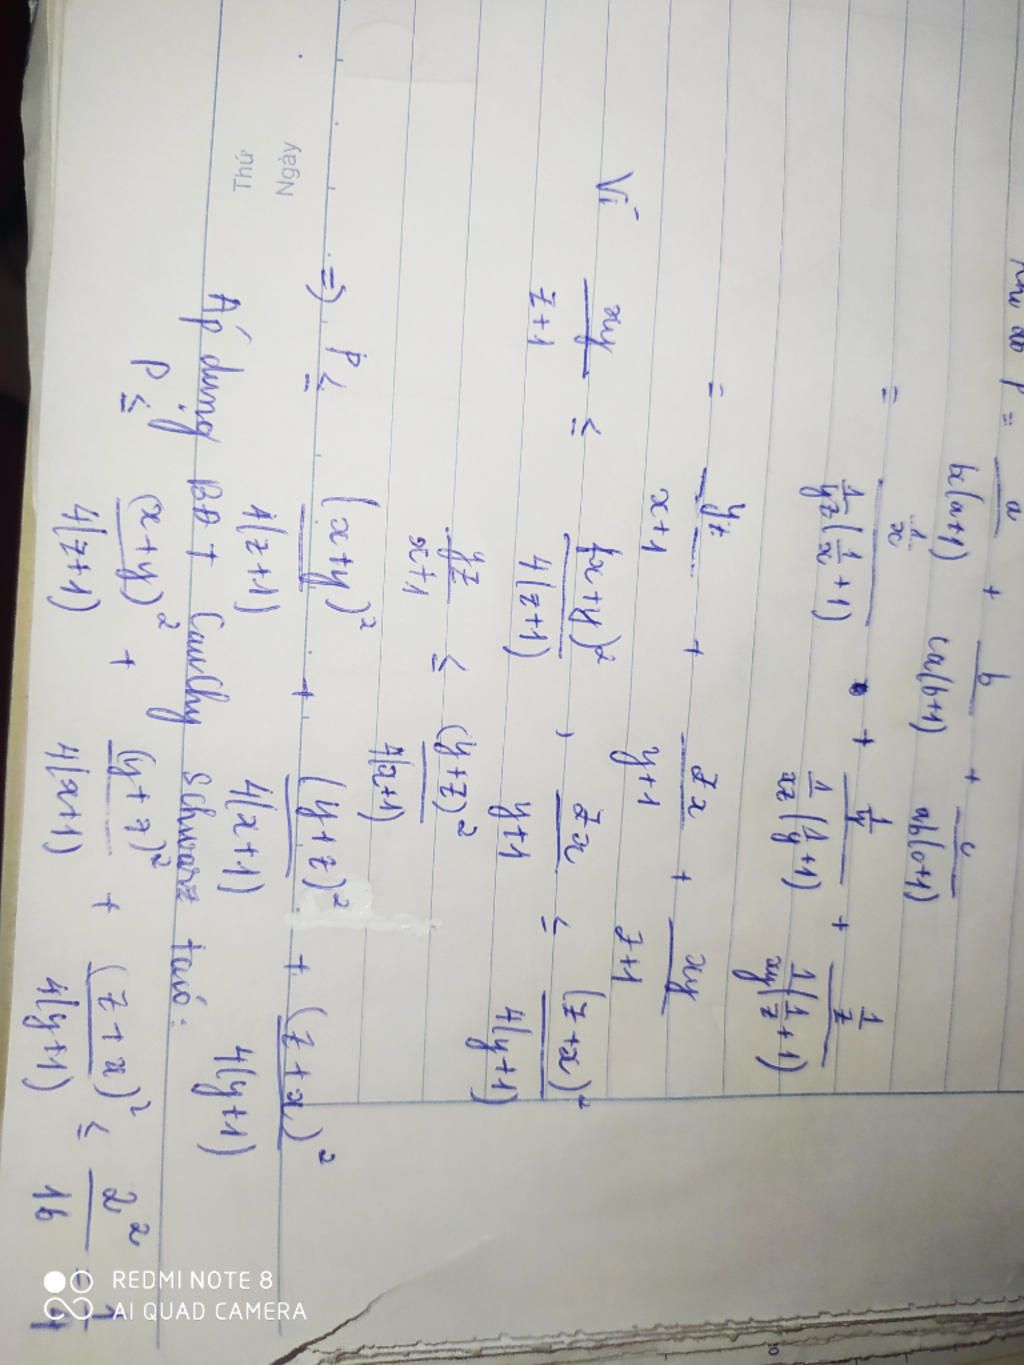 Khi đó P = a/bc(a+1) + b/ca(b+1) + c/ab(c+1)
= 1/x / 1/yz(1/x + 1) + 1/y / 1/xz(1/y + 1) + 1/z / 1/xy(1/z + 1)
= yz/x+1 + zx/y+1 + xy/z+1
Vì xy/z+1 ≤ (x+y)²/4(z+1) , zx/y+1 ≤ (z+x)²/4(y+1)
yz/x+1 ≤ (y+z)²/4(x+1)
=) P ≤ (x+y)²/4(z+1) + (y+z)²/4(x+1) + (z+x)²/4(y+1)
Áp dụng BĐT Cauchy Schwarz ta có:
P ≤ (x+y)²/4(z+1) + (y+z)²/4(x+1) + (z+x)²/4(y+1) ≤ 2²/16 = 1/4
Thứ
Ngày
REDMI NOTE 8
AI QUAD CAMERA